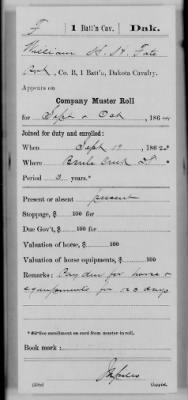 F | 1 Batt'n Cav. | Dak.
William H. H. Fate
Pvt, Co. B, 1 Batt'n, Dakota Cavalry.
Appears on
Company Muster Roll
for Sept & Oct, 186
Joined for duty and enrolled:
When Sept 19, 1862
Where Brule Creek D.T.
Period 3 years.*
Present or absent present
Stoppage, $ 100 for
Due Gov't, $ 100 for
Valuation of horse, $ 100
Valuation of horse equipments, $ 100
Remarks: Pay due for horse &
equipments for 23 days
*See enrollment on card from muster-in roll.
Book mark:
Copyist.